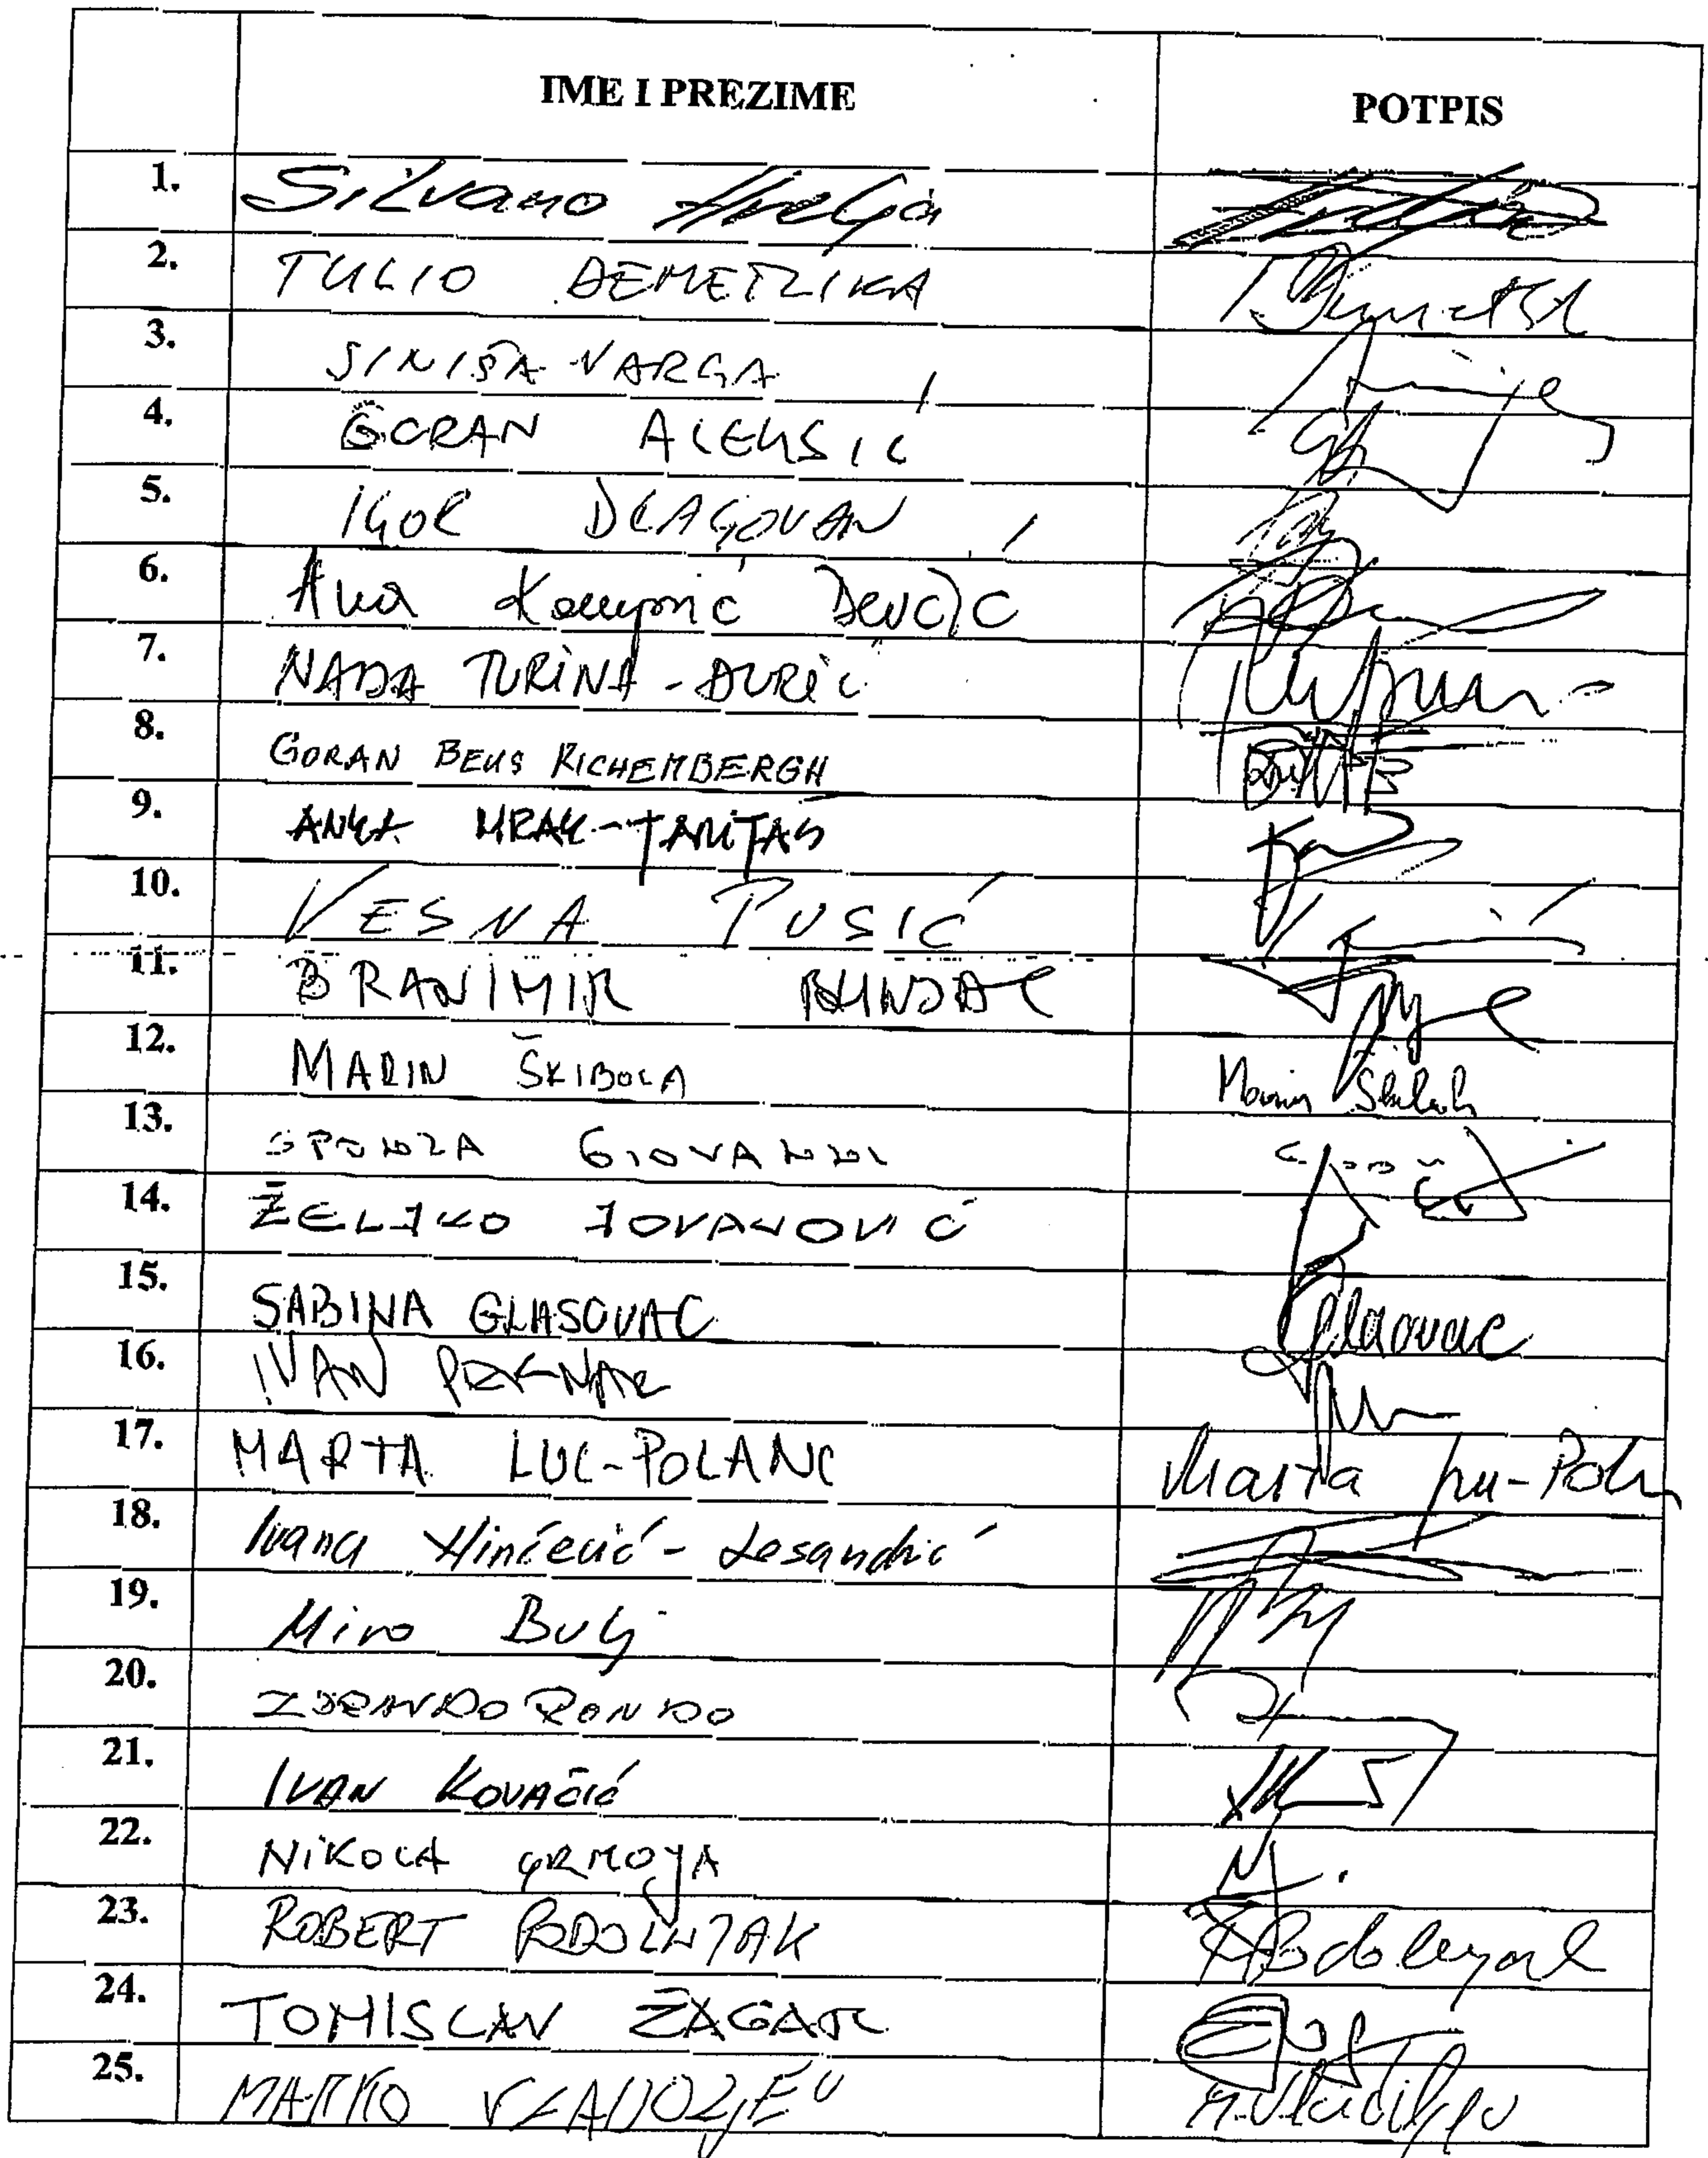 IME I PREZIME POTPIS
1. Silvano Hrelja
2. TULIO DEMETLIKA
3. SINIŠA VARGA
4. GORAN ALEKSIĆ
5. IGOR DRAGOVAN
6. Ana Komparić Devčić
7. NADA TURINA-ĐURIĆ
8. GORAN BEUS RICHEMBERGH
9. ANKA MRAK-TARITAŠ
10. VESNA PUSIĆ
11. BRANIMIR BUNJAC
12. MARIN ŠKIBOLA Marin
13. SPONZA GIOVANNI
14. ŽELJKO JOVANOVIĆ
15. SABINA GLASOVAC Glasovac
16. IVAN PERNAR
17. MARTA LUC-POLANC Marta
18. Ivana Ninčević-Lesandrić
19. Miro Bulj
20. ZDRAVKO RONKO
21. IVAN KOVAČIĆ
22. NIKOLA GRMOJA
23. ROBERT PODOLNJAK Podolnjak
24. TOMISLAV ŽAGAR
25. MARKO VLADOJEV